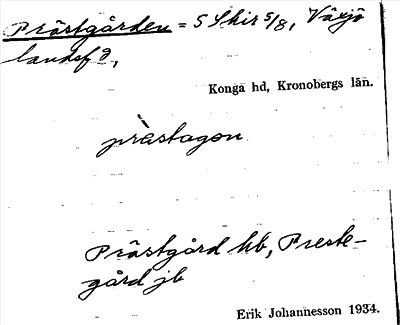 Prästgården = S Shir 5/8, Växjö
landsf d,
Konga hd, Kronobergs län.
pràstagon
Prästgård kb, Preste-
gård jb
Erik Johannesson 1934.